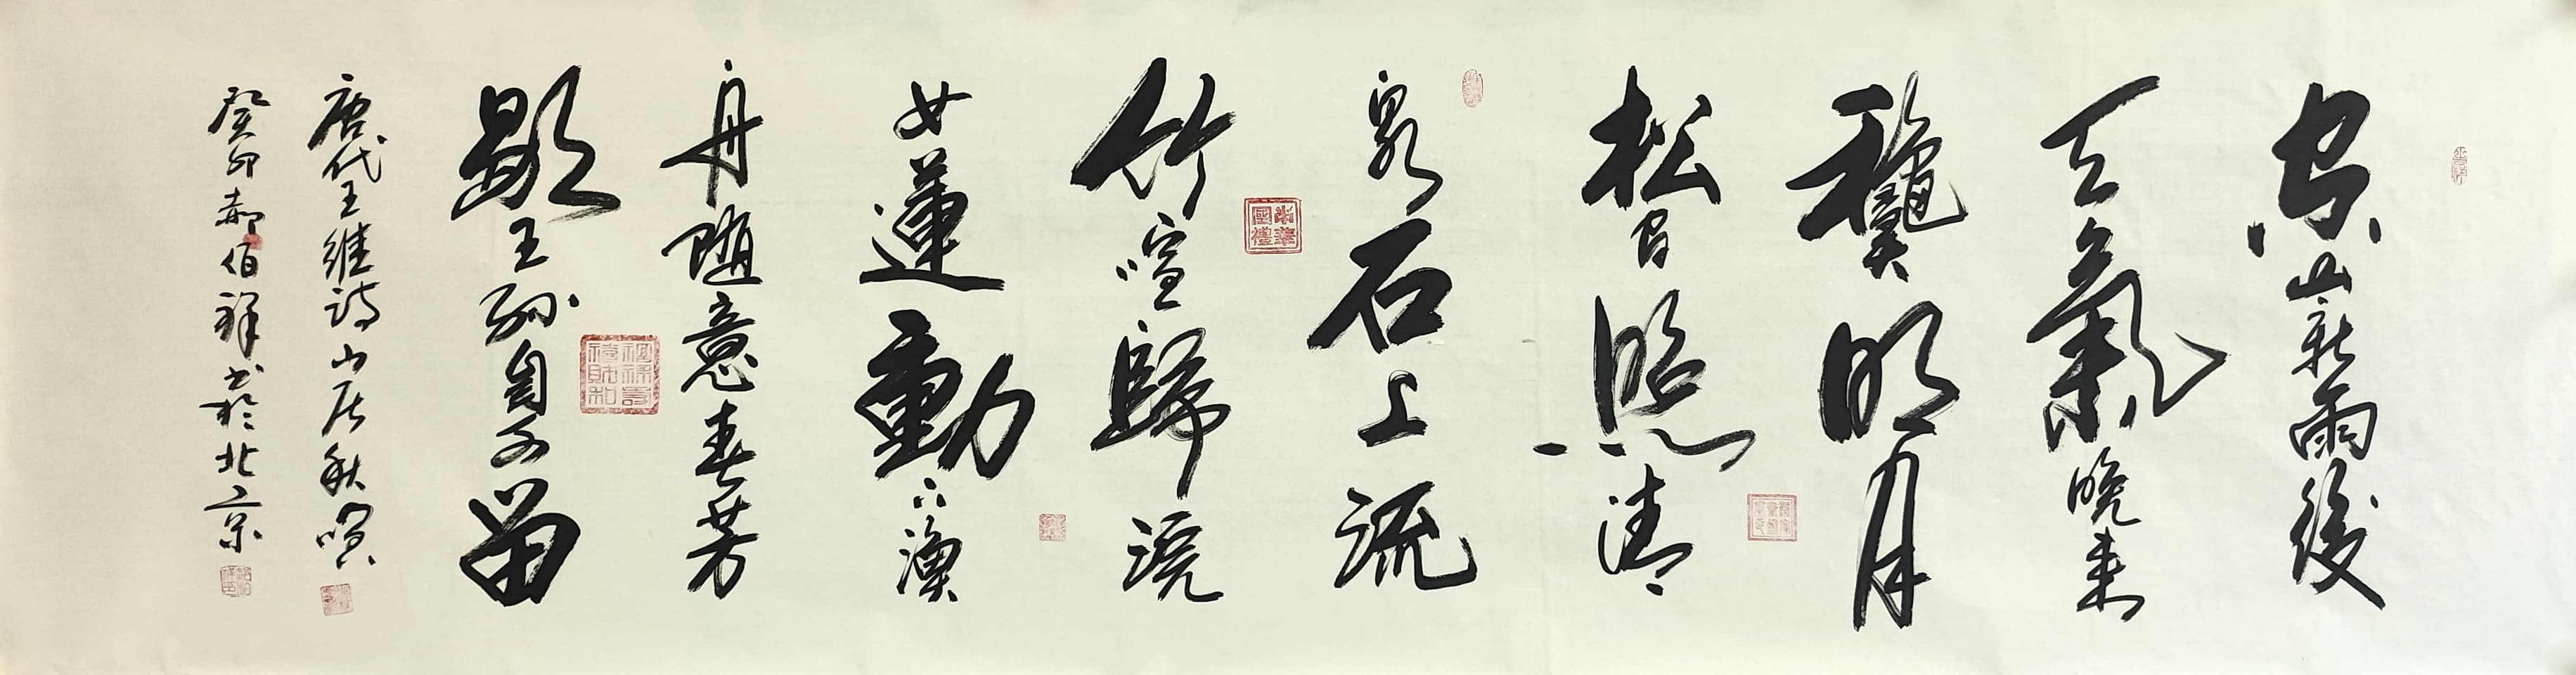 空山新雨後
天氣晚来
龝明月
松間照清
泉石上流
竹喧歸浣
女蓮動下漁
舟随意春芳
歇王孫自可留
唐代王維詩山居秋暝
癸卯郝伯祥书於北京